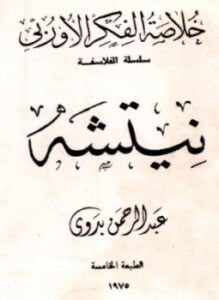 خلاصة الفكر الأوربي
سلسلة الفلاسفة
نيتشه
عبدالرحمن بدوي
الطبعة الخامسة
١٩٧٥